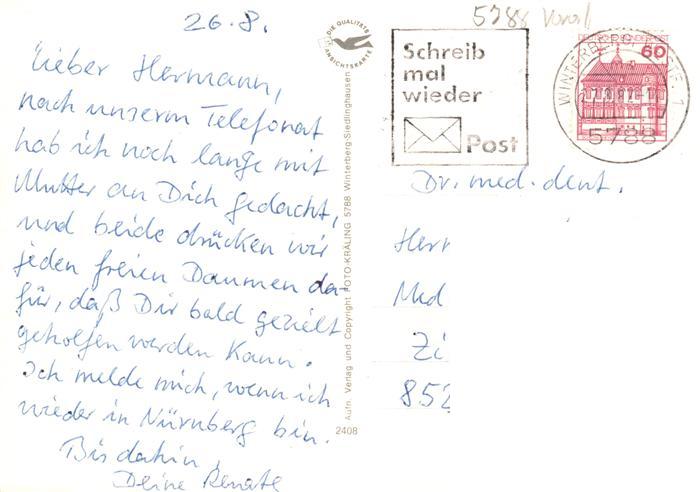 26.8.
Lieber Hermann,
nach unserm Telefonat
hab ich noch lange mit
Mutter an Dich gedacht,
und beide drücken wir
jeden freien Daumen da-
für, daß Dir bald gezielt
geholfen werden kann.
Ich melde mich, wenn ich
wieder in Nürnberg bin.
Bis dahin,
Deine Renate
DIE QUALITÄTS
ANSICHTSKARTE
Aufn. Verlag und Copyright FOTO-KRÄLING 5788 Winterberg-Siedlinghausen
2408
5788
Schreib
mal
wieder
Post
DEUTSCHE BUNDESPOST
60
WINTERBERG
1
5788
Dr. med. dent.
Herr
Med
Zi
852